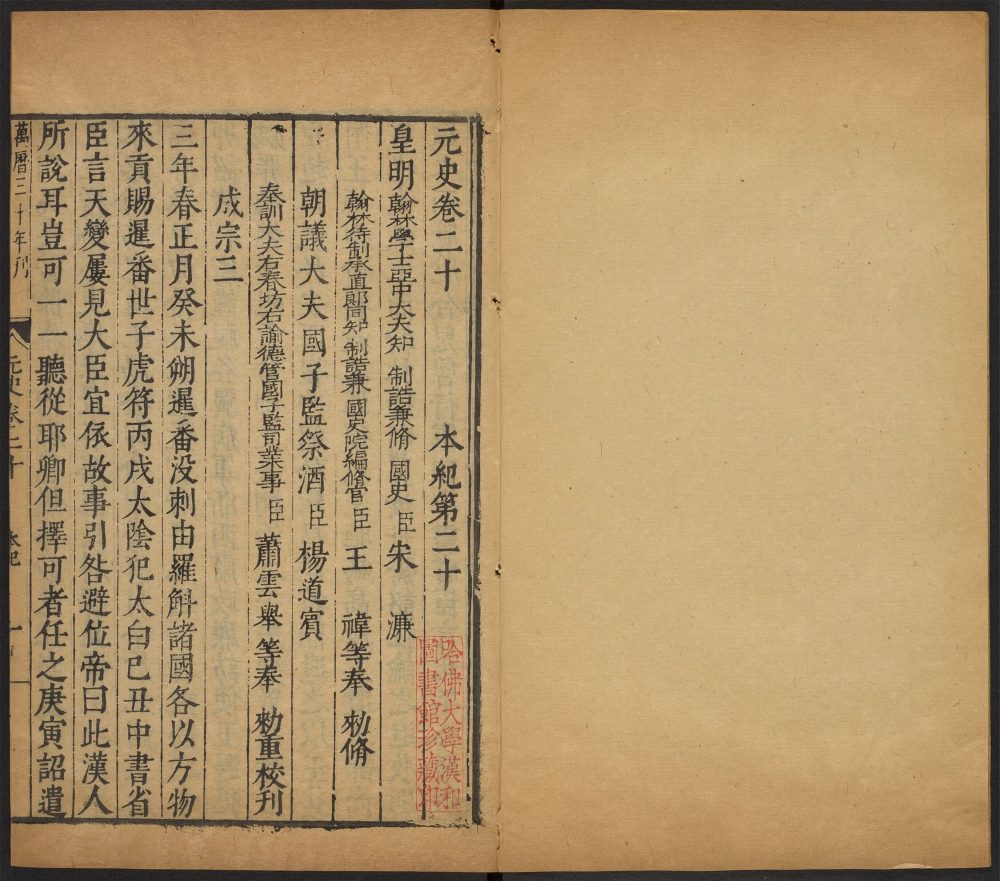 元史卷二十 本紀第二十
皇明翰林學士亞中大夫知 制誥兼脩 國史 臣 宋 濂
翰林待制承直郎同知 制誥兼 國史院編脩官 臣 王 禕等奉 勑脩
朝議大夫國子監祭酒 臣 楊道賓
奉訓大夫右春坊右諭德管國子監司業事 臣 蕭雲舉 等奉 勑重校刊
成宗三
三年春正月癸未朔暹番没剌由羅斛諸國各以方物
來貢賜暹番世子虎符丙戌太陰犯太白己丑中書省
臣言天變屢見大臣宜依故事引咎避位帝曰此漢人
所說耳豈可一一聽從耶卿但擇可者任之庚寅詔遣
萬曆三十年刊 元史卷二十 本紀 一
哈佛大學漢和
圖書館珍藏印